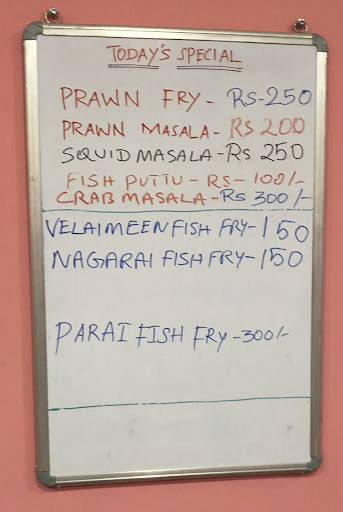 TODAY'S SPECIAL
PRAWN FRY - RS-250
PRAWN MASALA - RS 200
SQUID MASALA - RS 250
FISH PUTTU - RS - 100/-
CRAB MASALA - RS 300/-
VELAIMEEN FISH FRY - 150
NAGARAI FISH FRY - 150
PARAI FISH FRY - 300/-